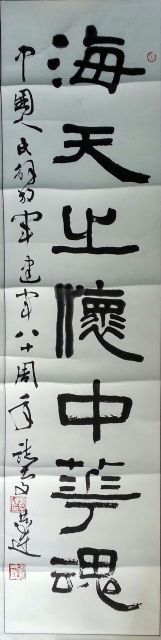 海天之懷中華魂
中國人民解放軍建軍八十周年